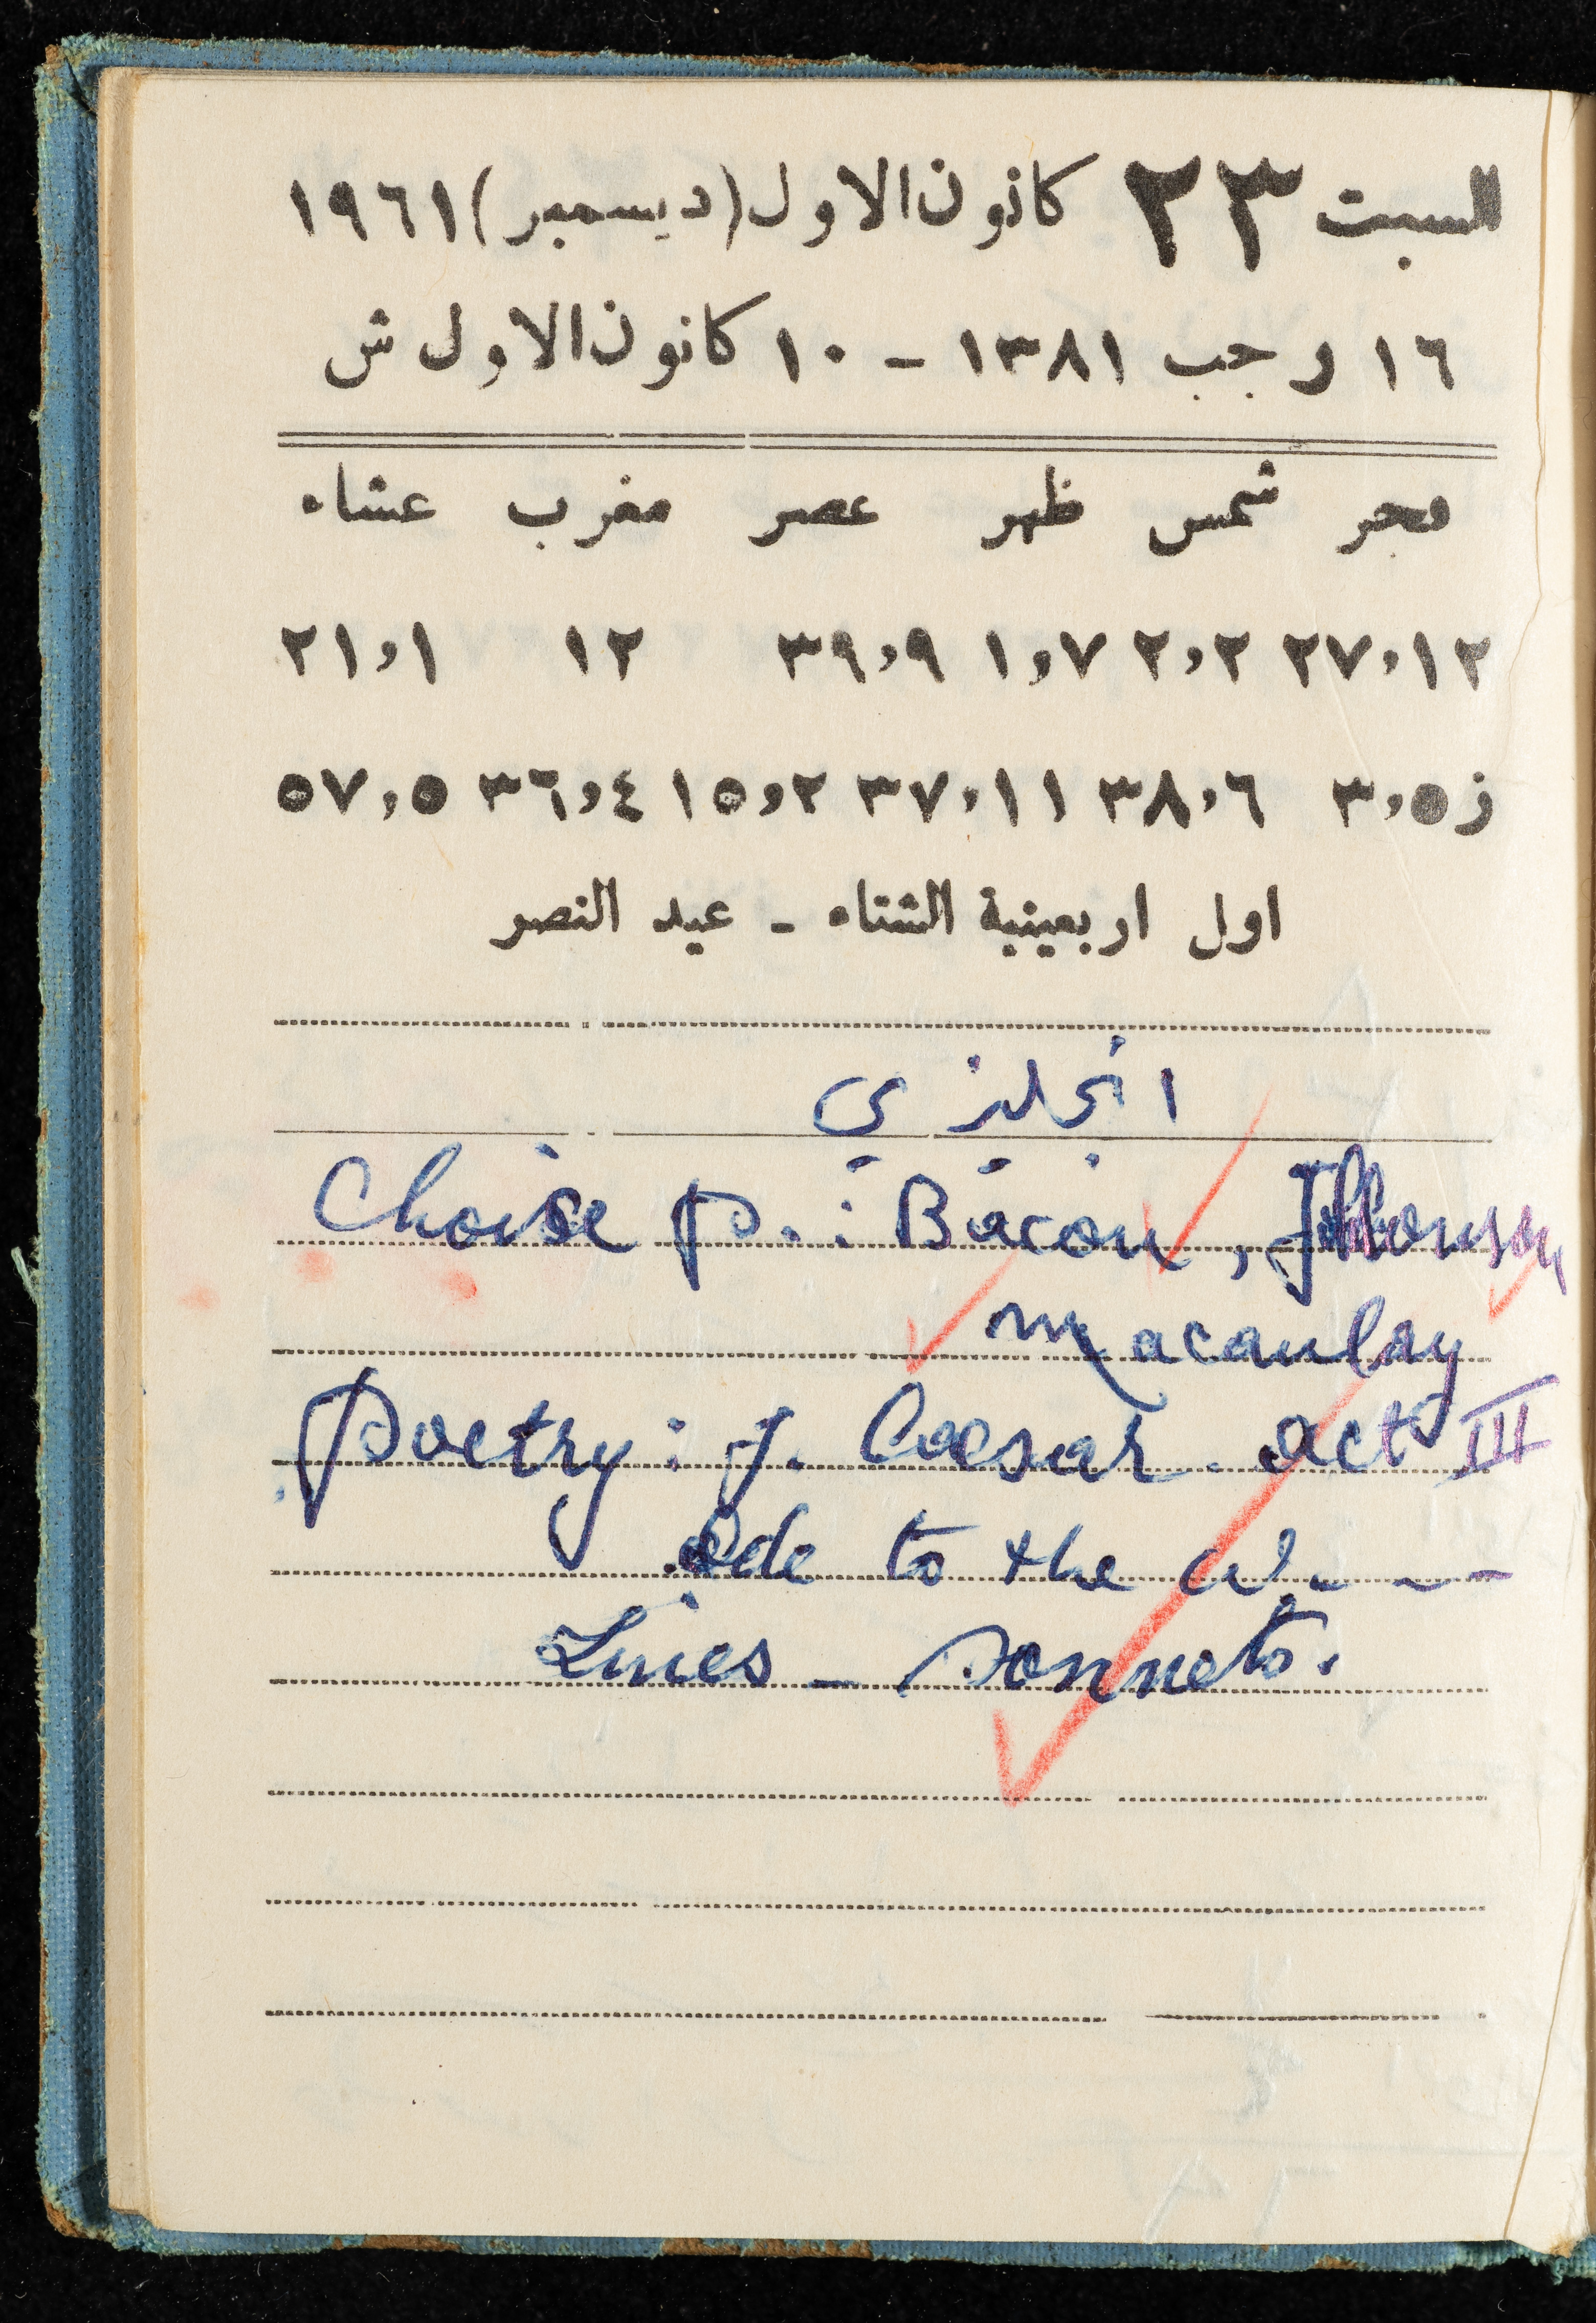 السبت ٢٣ كانون الاول (ديسمبر) ١٩٦١
١٦ رجب ١٣٨١ - ١٠ كانون الاول ش
فجر شمس ظهر عصر مغرب عشاء
٢٧,١٢ ٢,٢ ١,٧ ٣٩,٩ ١٢ ٢١,١
ز ٣,٥ ٣٨,٦ ٣٧,١١ ١٥,٢ ٣٦,٤ ٥٧,٥
اول اربعينية الشتاء - عيد النصر
انجليزي
Choise P. : Bacon, Jhonson
Macaulay
Poetry: J. Caesar. act III
Ode to the W- - -
Lines - Sonnets.